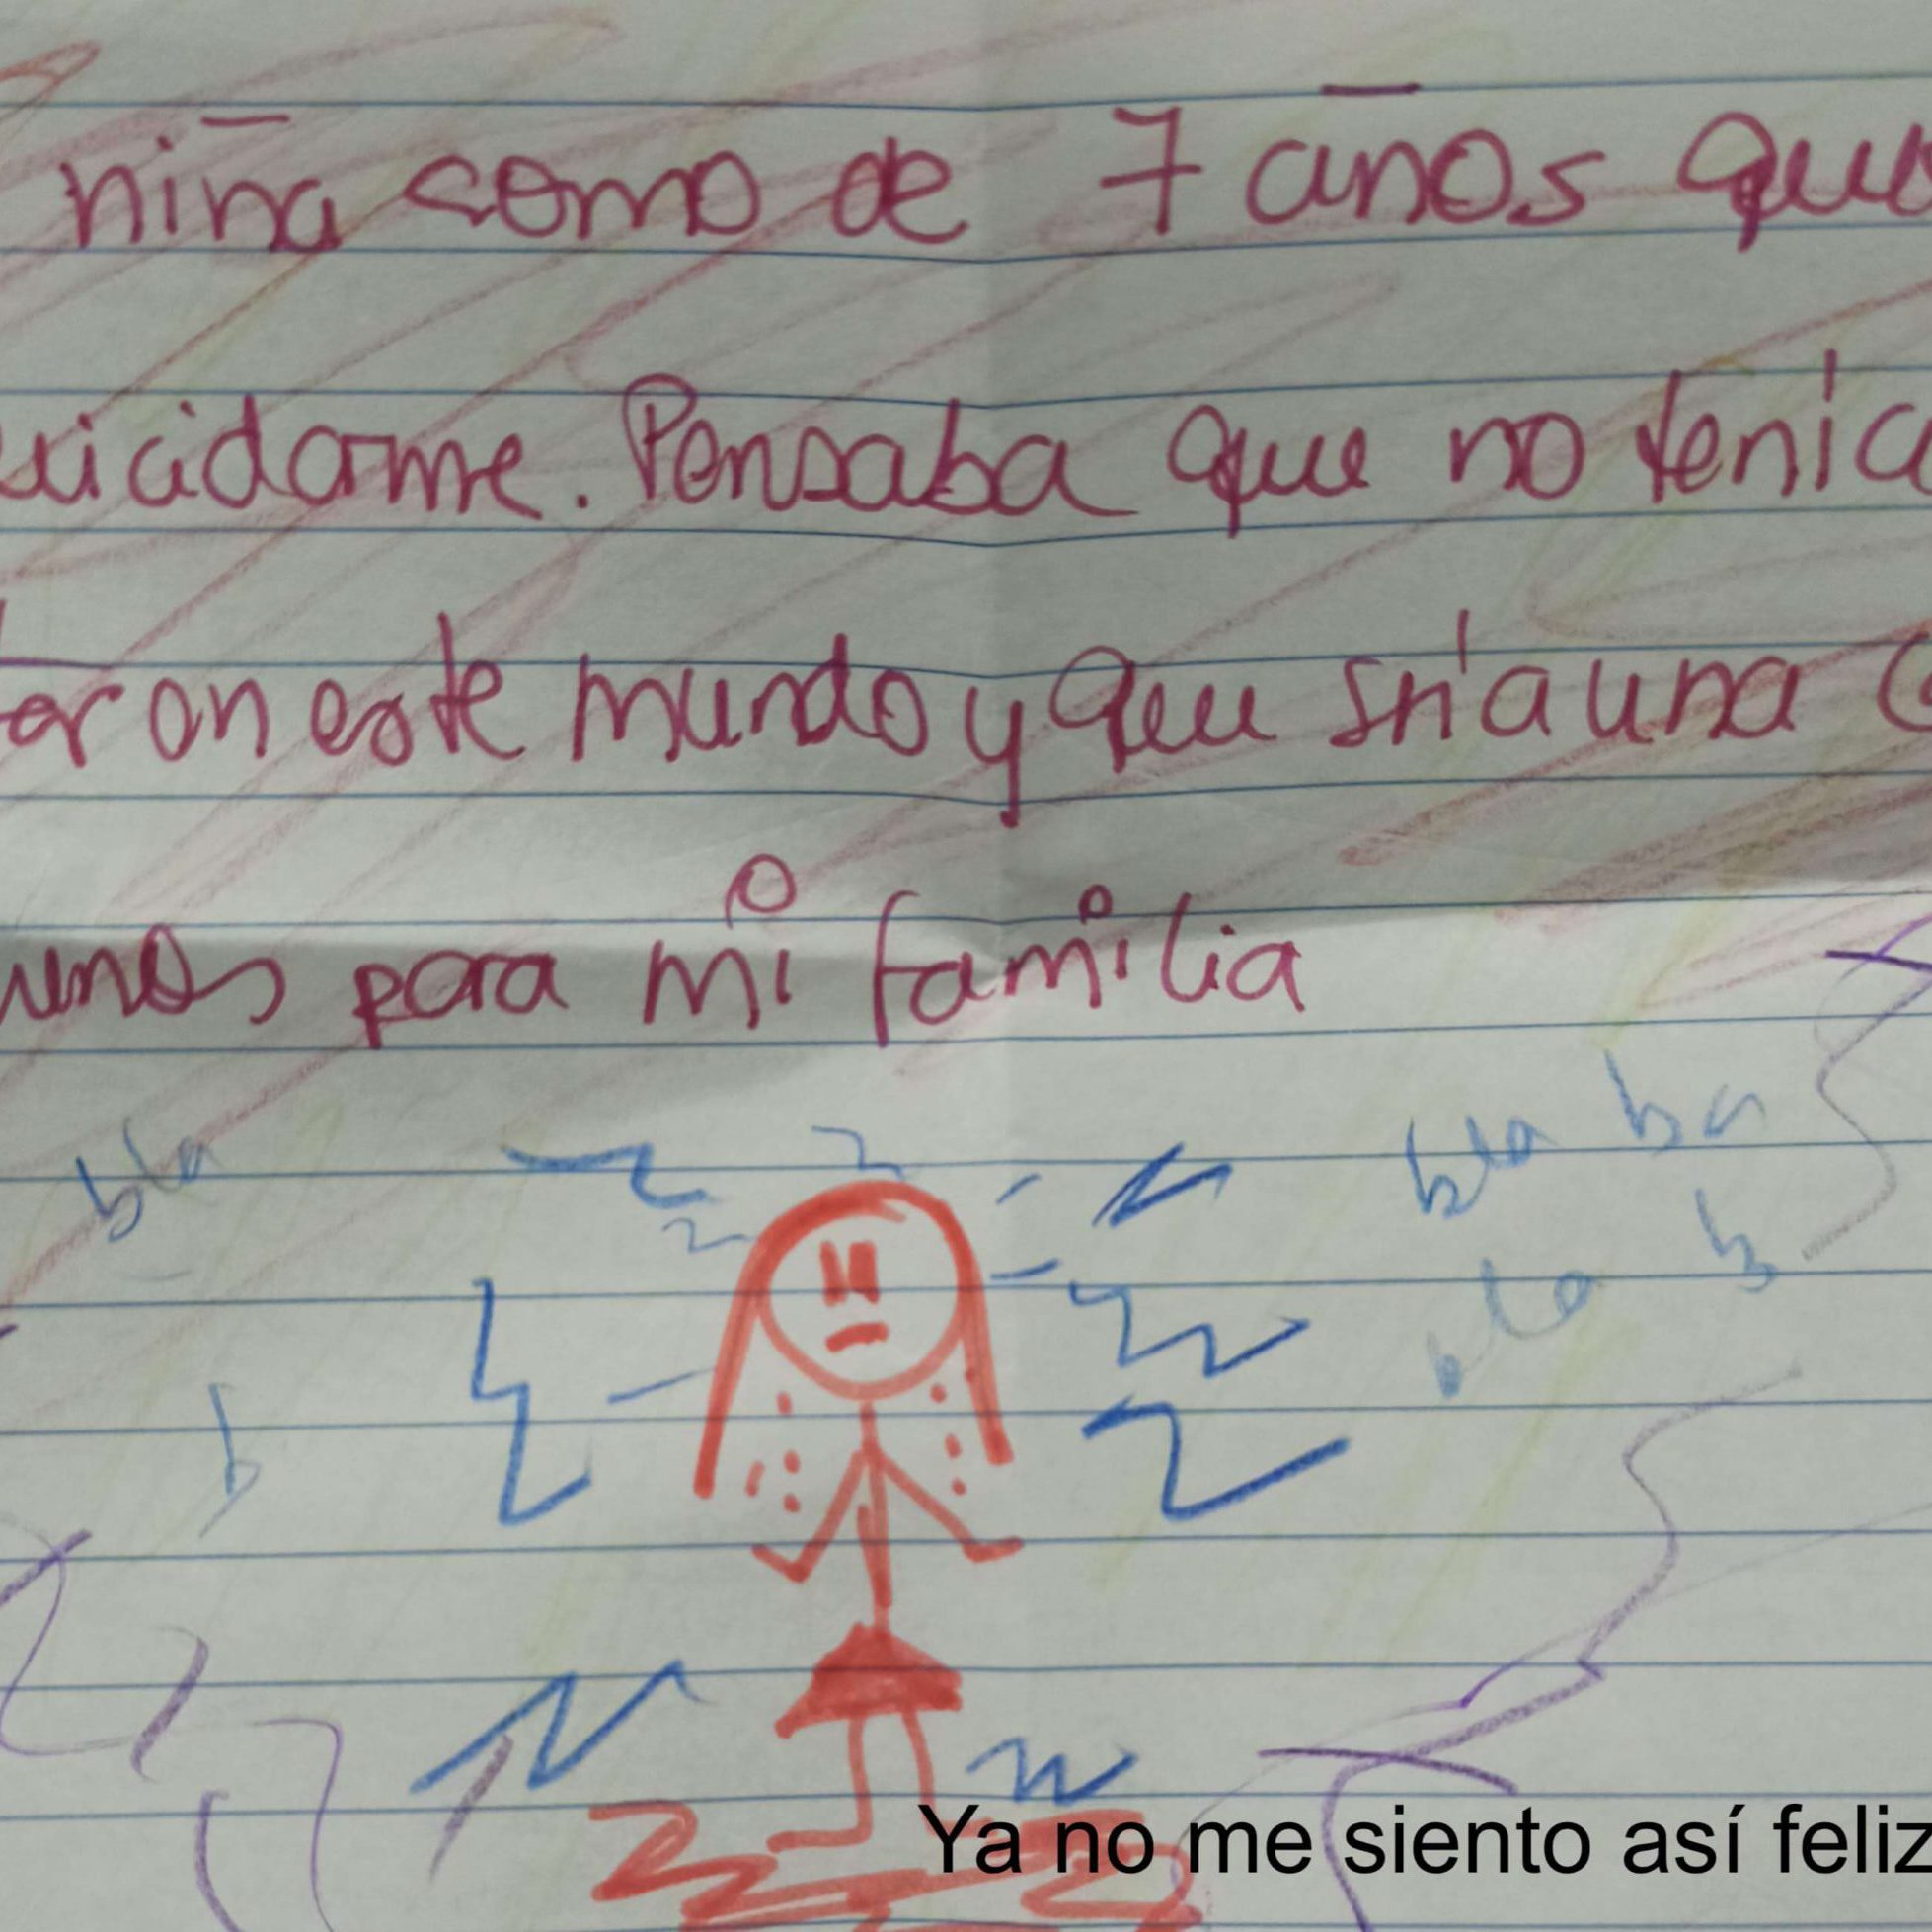 niña como de 7 años que
uicidarme. Pensaba que no tenía
ar en este mundo y que sría una
para mi familia
bla bla ba
b
bla
b
Ya no me siento así feliz